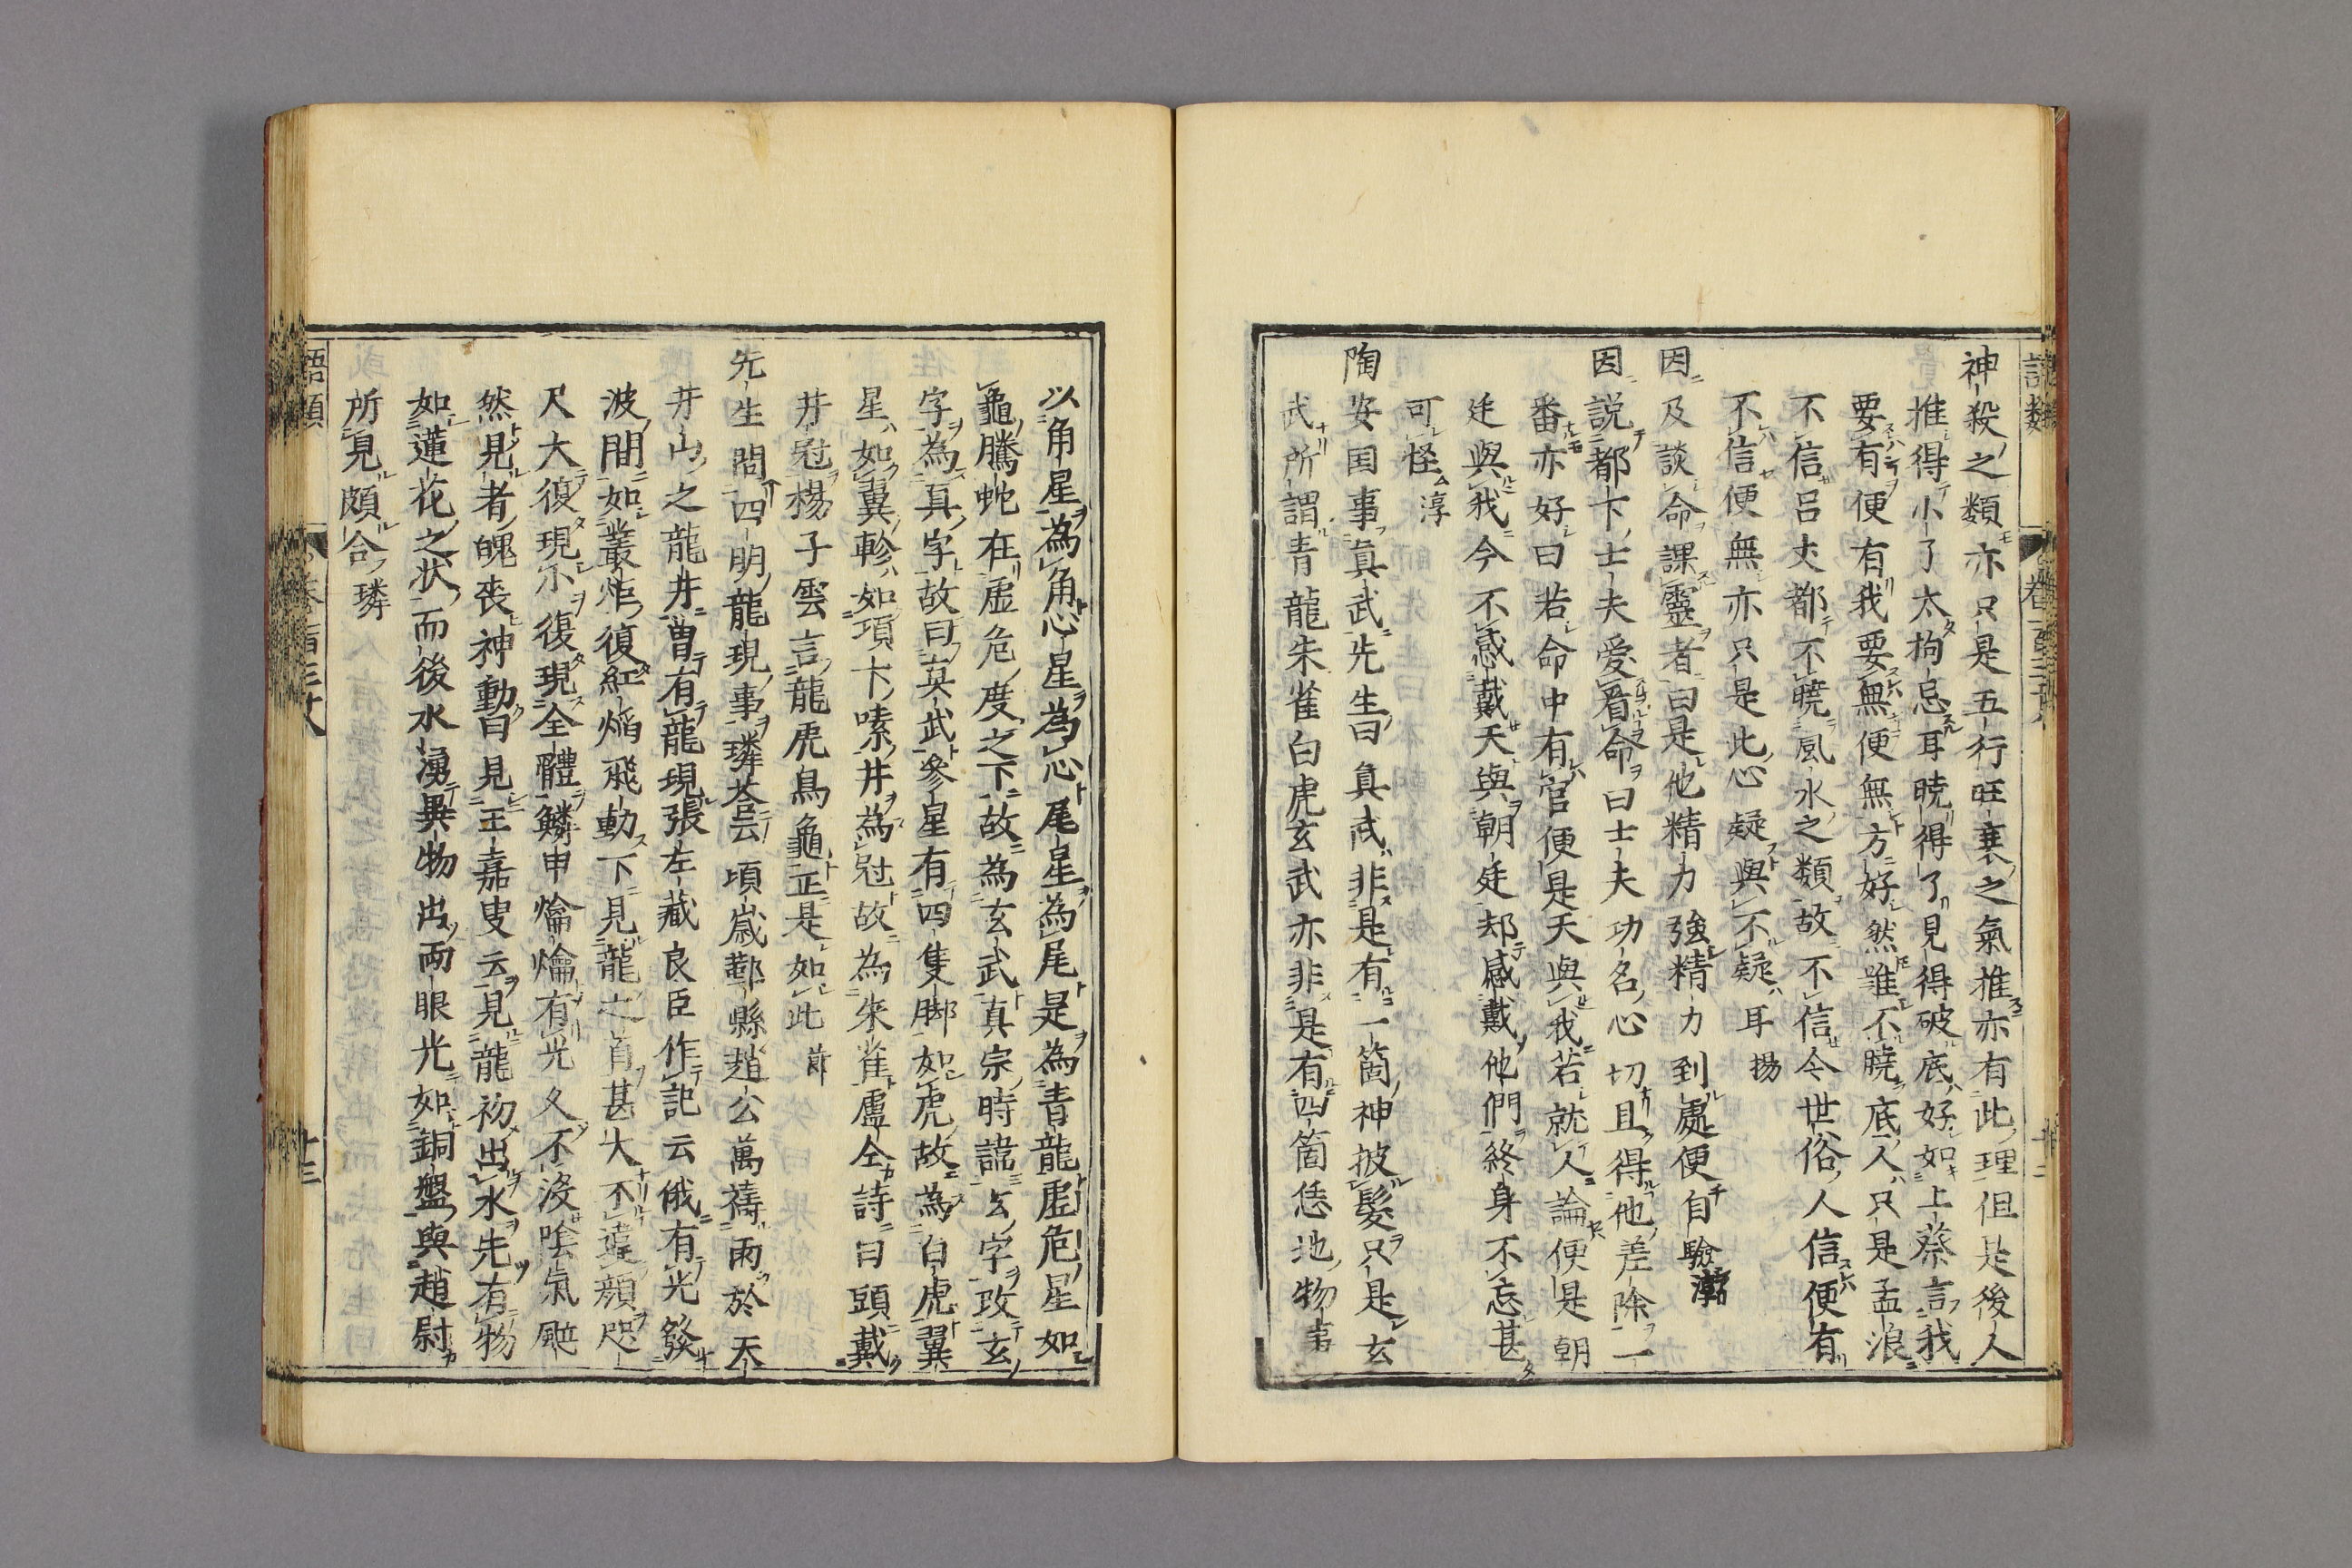 神殺之類亦只是五行旺衰之氣推亦有此理但是後人
推得小了太拘忌耳曉得了見得破底好如上蔡言我
要有便有我要無便無方好然難不曉底人只是孟浪
不信呂丈都不曉風水之類故不信今世俗人信便有
不信便無亦只是此心疑與不疑耳 揚
因及談命課靈者曰是他精力強精力到處便自驗 𤀹
因說都下士夫愛看命曰士夫功名心切且得他差除一
番亦好曰若命中有官便是天與我若就人論便是朝
廷與我今不感戴天與朝廷却感戴他們終身不忘甚
可怪 淳
陶安国事真武先生曰真武非是有一箇神披髮只是玄
武所謂青龍朱雀白虎玄武亦非是有四箇恁地物事
以角星為角心星為心尾星為尾是為青龍虛危星如
龜騰虵在虛危度之下故為玄武真宗時諱玄字攻玄
字為真字故曰真武參星有四隻脚如虎故為白虎翼
星如翼軫如項下嗉井為冠故為朱雀盧仝詩曰頭戴
井冠楊子雲言龍虎鳥龜正是如此 節
先生問四明龍現事璘荅云頃歲鄞縣趙公萬禱雨於天
井山之龍井曽有龍現張左藏良臣作記云俄有光發
波間如叢炬復紅焰飛動下見龍之首甚大不違顔咫
尺大復現小復現全體鱗甲爚爚有光久不沒陰氣颼
然見者魄喪神動曰見王嘉叟云見龍初出水先有物
如蓮花之状而後水湧異物出兩眼光如銅盤與趙尉
所見頗合 璘
語類
卷一百三十八
十三